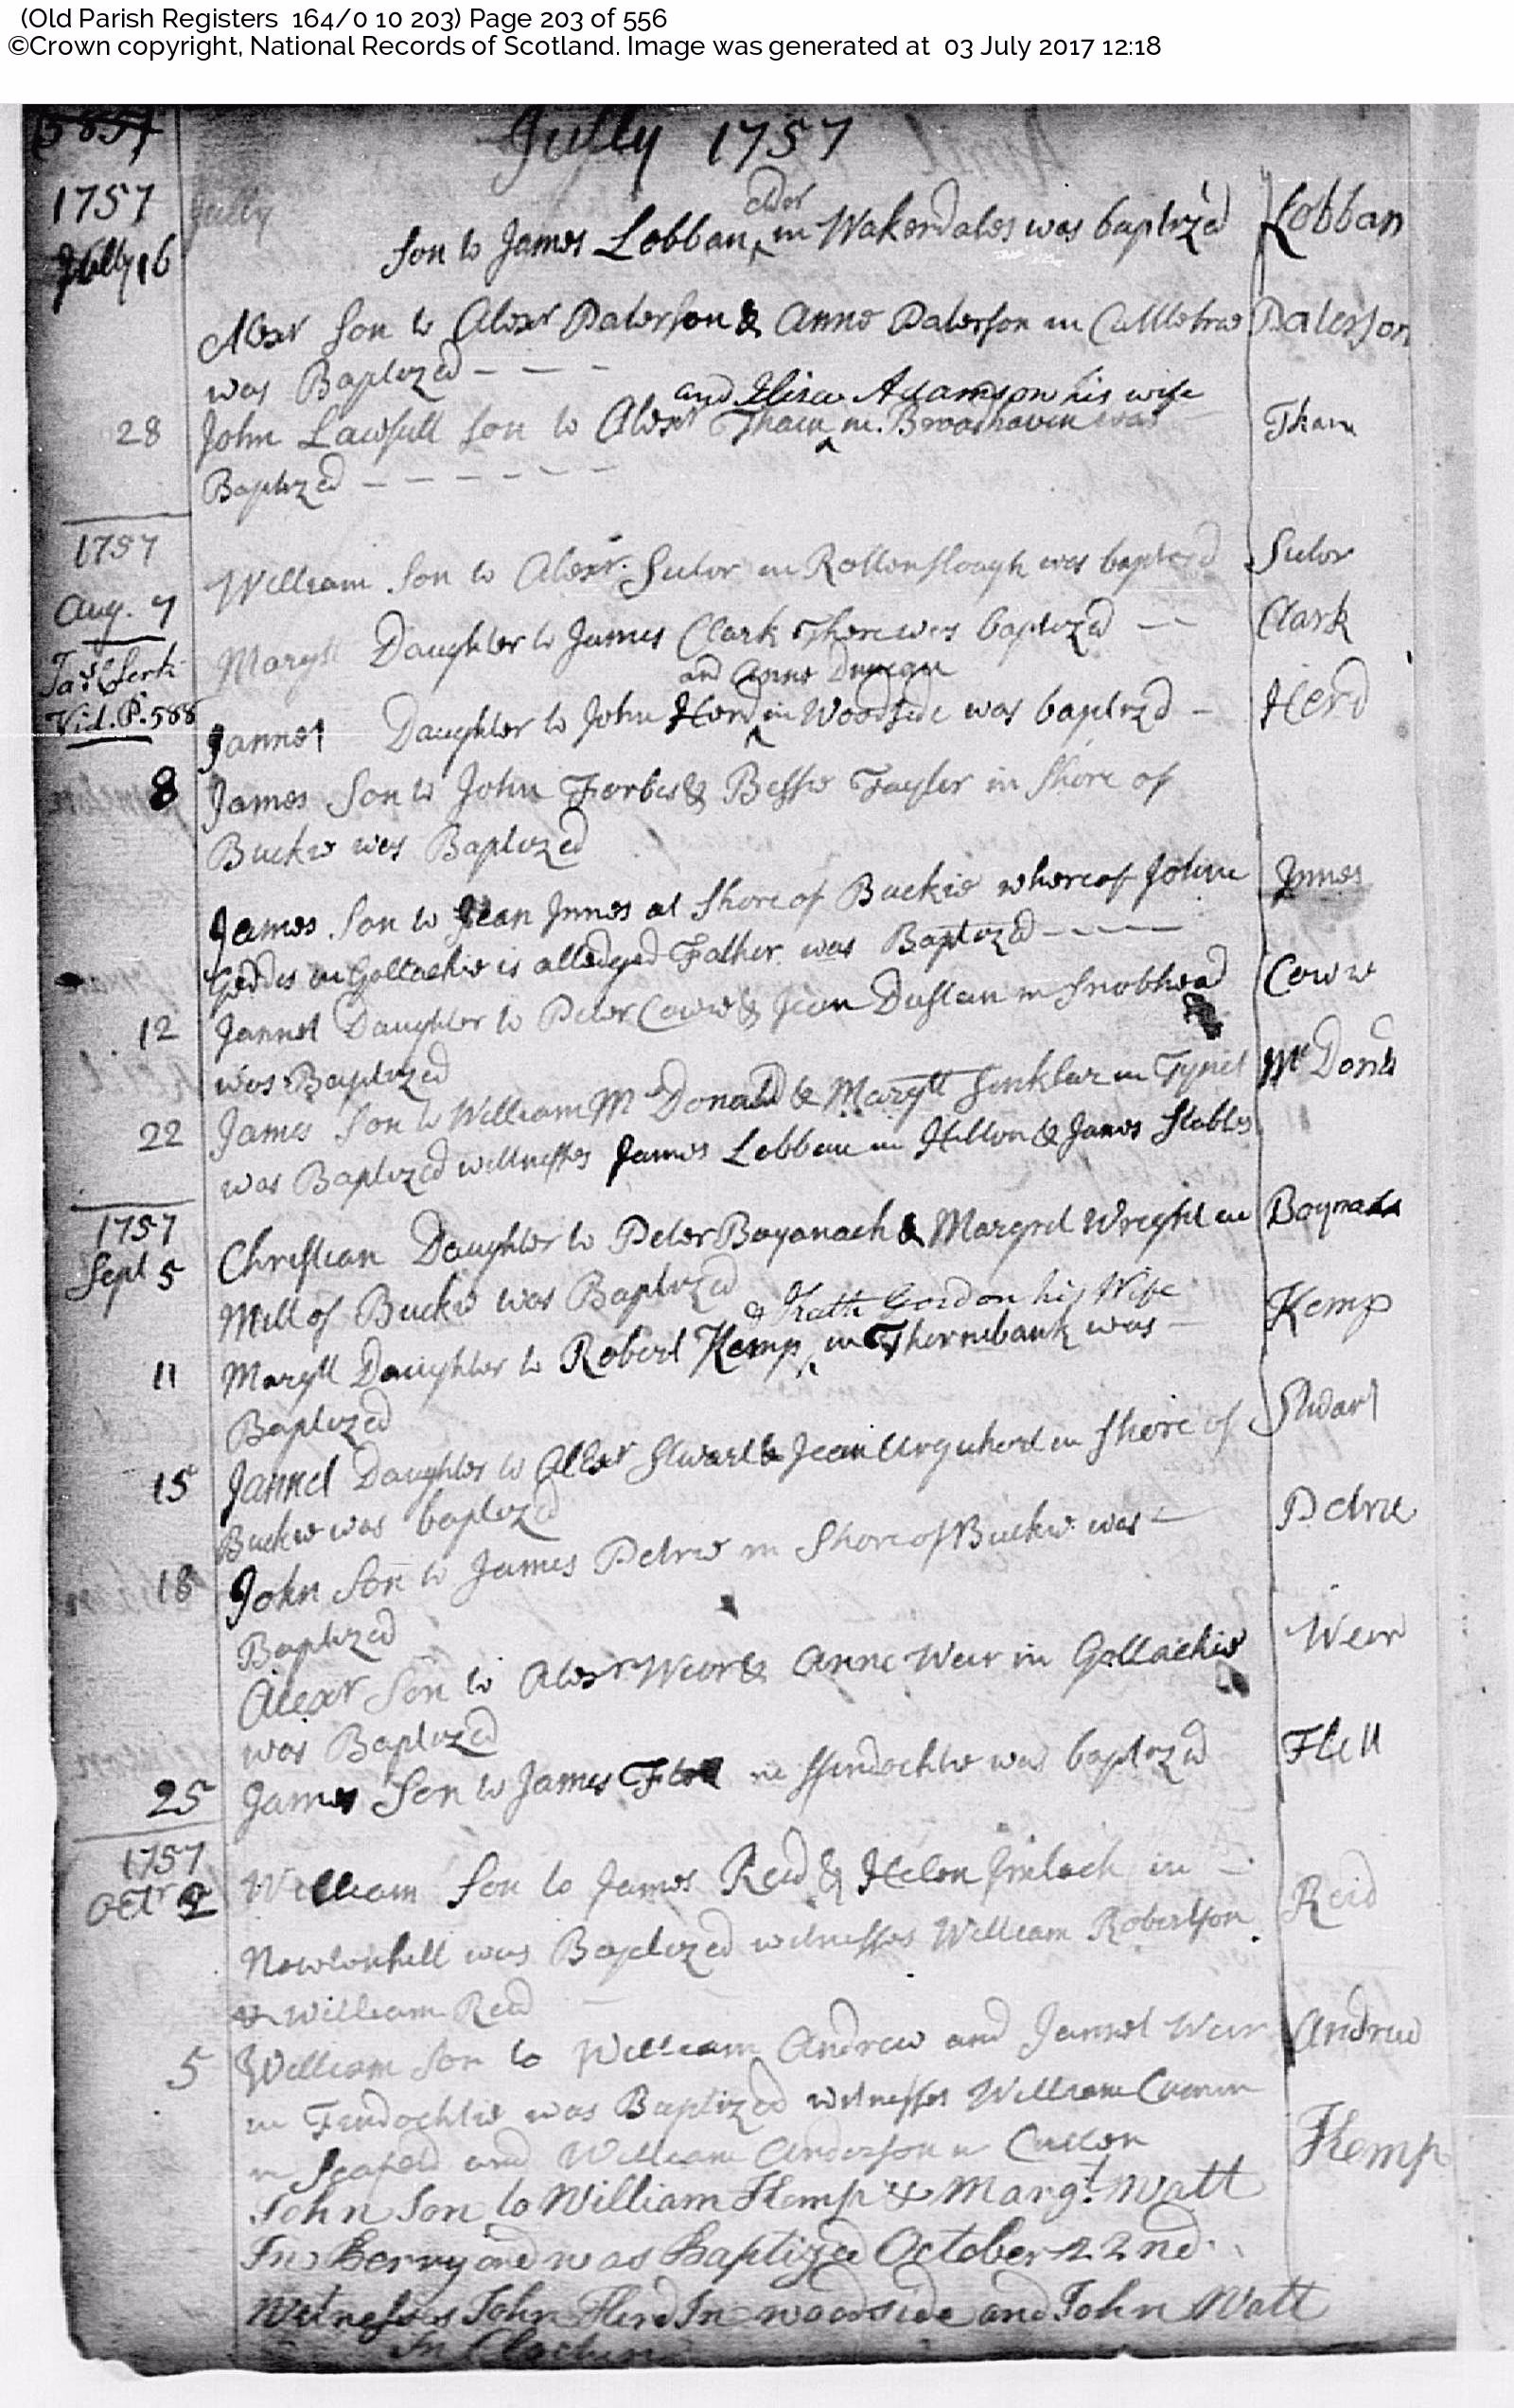 (Old Parish Registers 164/0 10 203) Page 203 of 556
©Crown copyright, National Records of Scotland. Image was generated at 03 July 2017 12:18
Jully 1757
1757 Jully
elder
Jully 16 Son to James Lobban in Wakerdales was baptized Lobban
Alexr Son to Alexr Paterson & Anne Paterson in Paterson
was Baptized
and Eliza Adamson his wife
28 John Lawfull son to Alexr Thain in Broadhaven was Thain
Baptized
1757
Aug. 7 William Son to Alexr. Sutor in Rottenslough was baptized Sutor
Margtt Daughter to James Clark there was baptized Clark
Jas. Clerk
Vid. P. 588
and Anne Duncan
Jannet Daughter to John Herd in Woodside was baptized Herd
8 James Son to John Forbes & Bessie Tayler in Shore of
Buckie was Baptized
James Son to Jean Innes at Shore of Buckie whereof John Innes
Geddes in Gollachie is alledged Father was Baptized
12 Jannet Daughter to Peter Cowie & Jean Duffan in Cowie
was Baptized
22 James Son to William McDonald & Margtt Sinklar in Tynet McDonld
was Baptized wittnesses James Lobban in Hilton & James Stables
1757
Sept 5 Christian Daughter to Peter Boyanach & Margret Wright in
Mill of Buckie was Baptized
& Kath Gordon his Wife
11 Margtt Daughter to Robert Kemp in Thornebank was Kemp
Baptized
15 Jannet Daughter to Allexr Stuart & Jean Urquhart in Shore of Stuart
Buckie was baptized
18 John Son to James Petrie in Shore of Buckie was Petrie
Baptized
Alexr Son to Alexr Weir & Anne Weir in Gollachie Weir
was Baptized
25 James Son to James Flett in ffindochtie was baptized Flett
1757
Octr 2 William Son to James Reid & Helen in Reid
Newtonhill was Baptized witnesses William Robertson
& William Reid
5 William Son to William Andrew and Jannet Weir Andrew
in Findochtie was Baptized witnesses William Cumin
in Scafeld and William Anderson in Cullen
John Son to William Kemp & Margt. Watt Kemp
In Berryard was Baptized October 22nd
Witnesses John Herd In woodside and John Watt
In